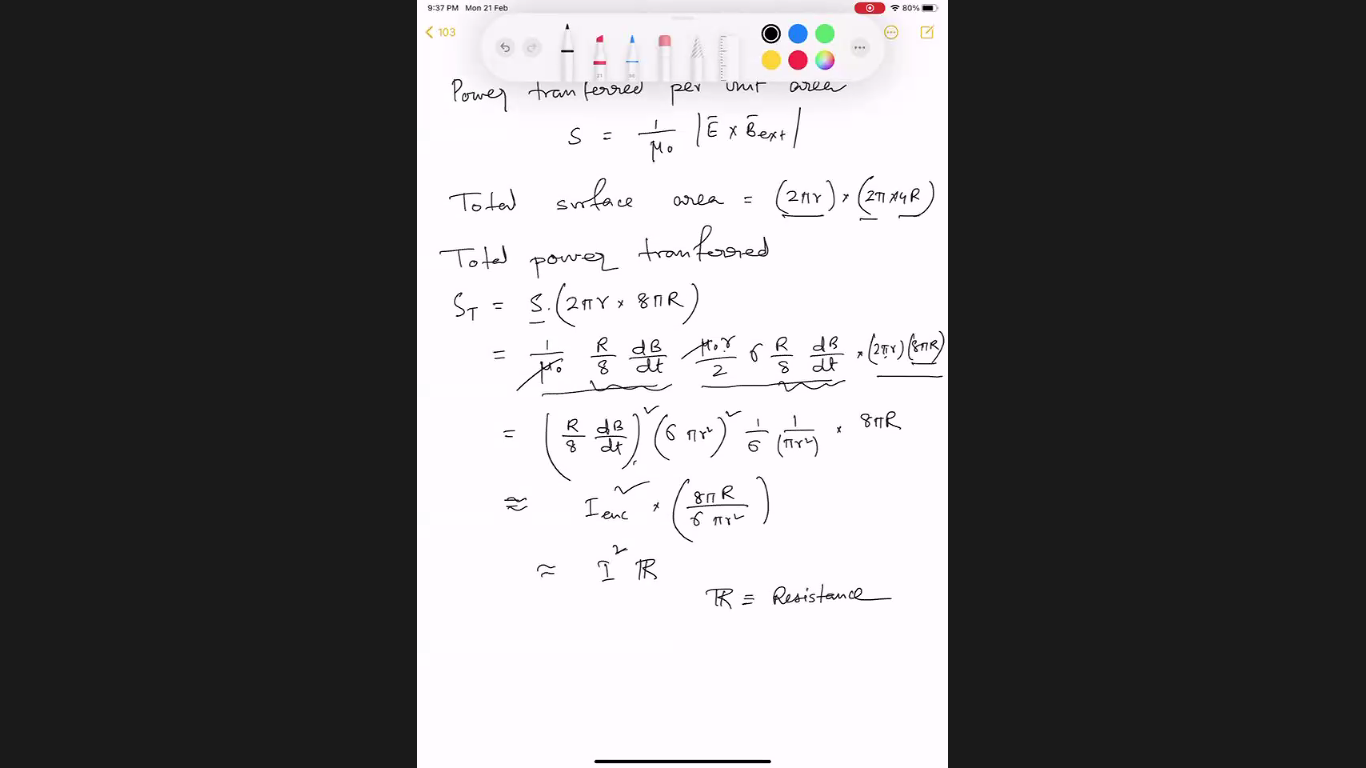 9:37 PM Mon 21 Feb 80%
103
Power tranferred per unit area
S = 1/μ₀ |Ē × B̄ext|
Total surface area = (2πr) × (2π × 4R)
Total power tranferred
S_T = S · (2πr × 8πR)
= 1/μ₀ R/8 dB/dt μ₀r/2 σ R/8 dB/dt × (2πr) (8πR)
= (R/8 dB/dt)² (σ πr²)² 1/σ 1/(πr²) × 8πR
≈ I²enc × (8πR/σ πr²)
≈ I² ℝ
ℝ ≡ Resistance